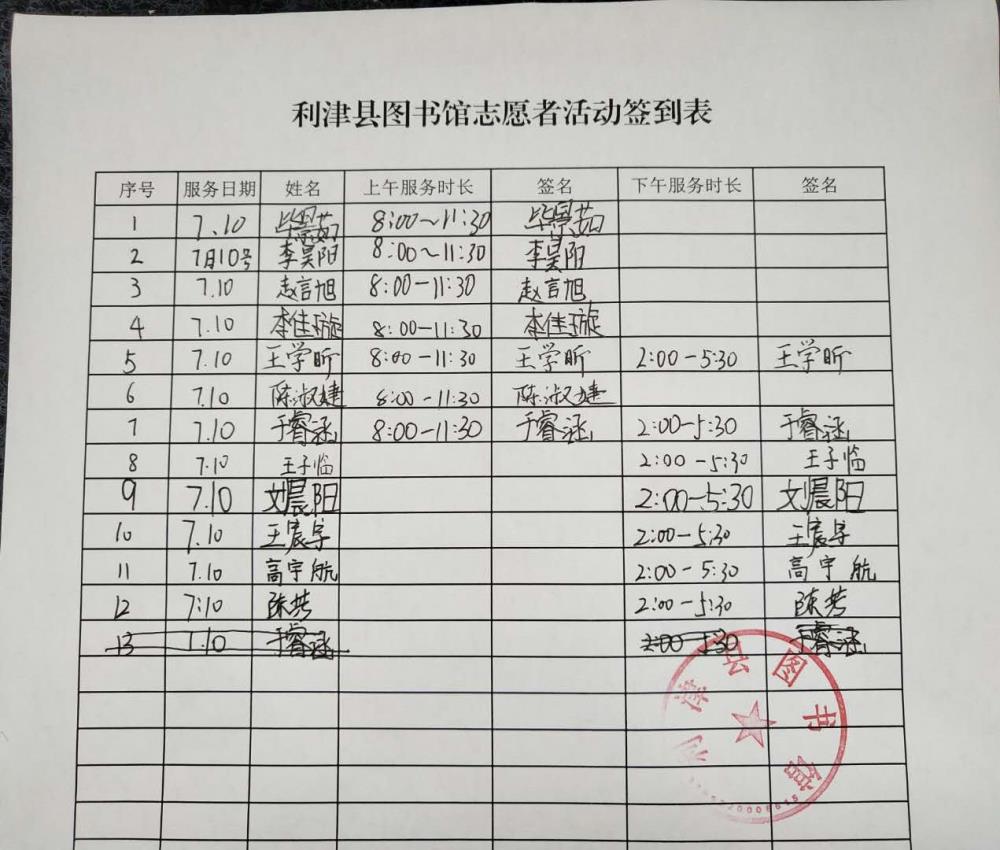 利津县图书馆志愿者活动签到表
序号 服务日期 姓名 上午服务时长 签名 下午服务时长 签名
1 7.10 毕景茹 8:00~11:30 毕景茹
2 7月10号 李昊阳 8:00~11:30 李昊阳
3 7.10 赵言旭 8:00-11:30 赵言旭
4 7.10 李佳璇 8:00-11:30 李佳璇
5 7.10 王学昕 8:00-11:30 王学昕 2:00-5:30 王学昕
6 7.10 陈淑婕 8:00-11:30 陈淑婕
7 7.10 于睿涵 8:00-11:30 于睿涵 2:00-5:30 于睿涵
8 7.10 王子临 2:00-5:30 王子临
9 7.10 刘晨阳 2:00-5:30 刘晨阳
10 7.10 王宸宇 2:00-5:30 王宸宇
11 7.10 高宇航 2:00-5:30 高宇航
12 7:10 陈若 2:00-5:30 陈若
13 7.10 于睿涵 2:00 5:30 于睿涵
利津县图书馆